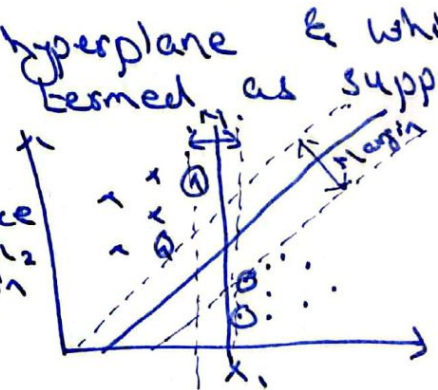 hyperplane & whi
termed as supp
M
Margin
ce
x₁